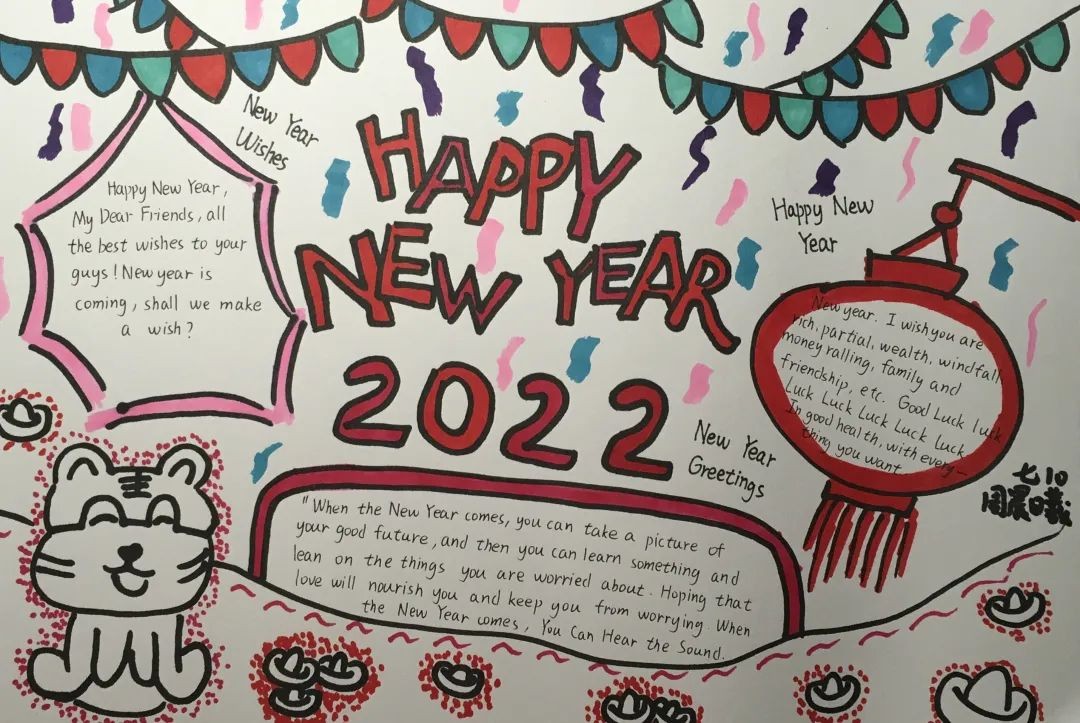 New Year
Wishes
Happy New Year,
My Dear Friends, all
the best wishes to your
guys! New year is
coming, shall we make
a wish?
HAPPY
NEW YEAR
2022
Happy New
Year
New year. I wish you are
rich, partial, wealth, windfall
money ralling, family and
friendship, etc. Good Luck luck
Luck Luck Luck Luck Luck
In good health, with every-
thing you want
New Year
Greetings
"When the New Year comes, you can take a picture of
your good future, and then you can learn something and
lean on the things you are worried about. Hoping that
love will nourish you and keep you from worrying. When
the New Year comes, You Can Hear the Sound.
七10
周晨曦
王